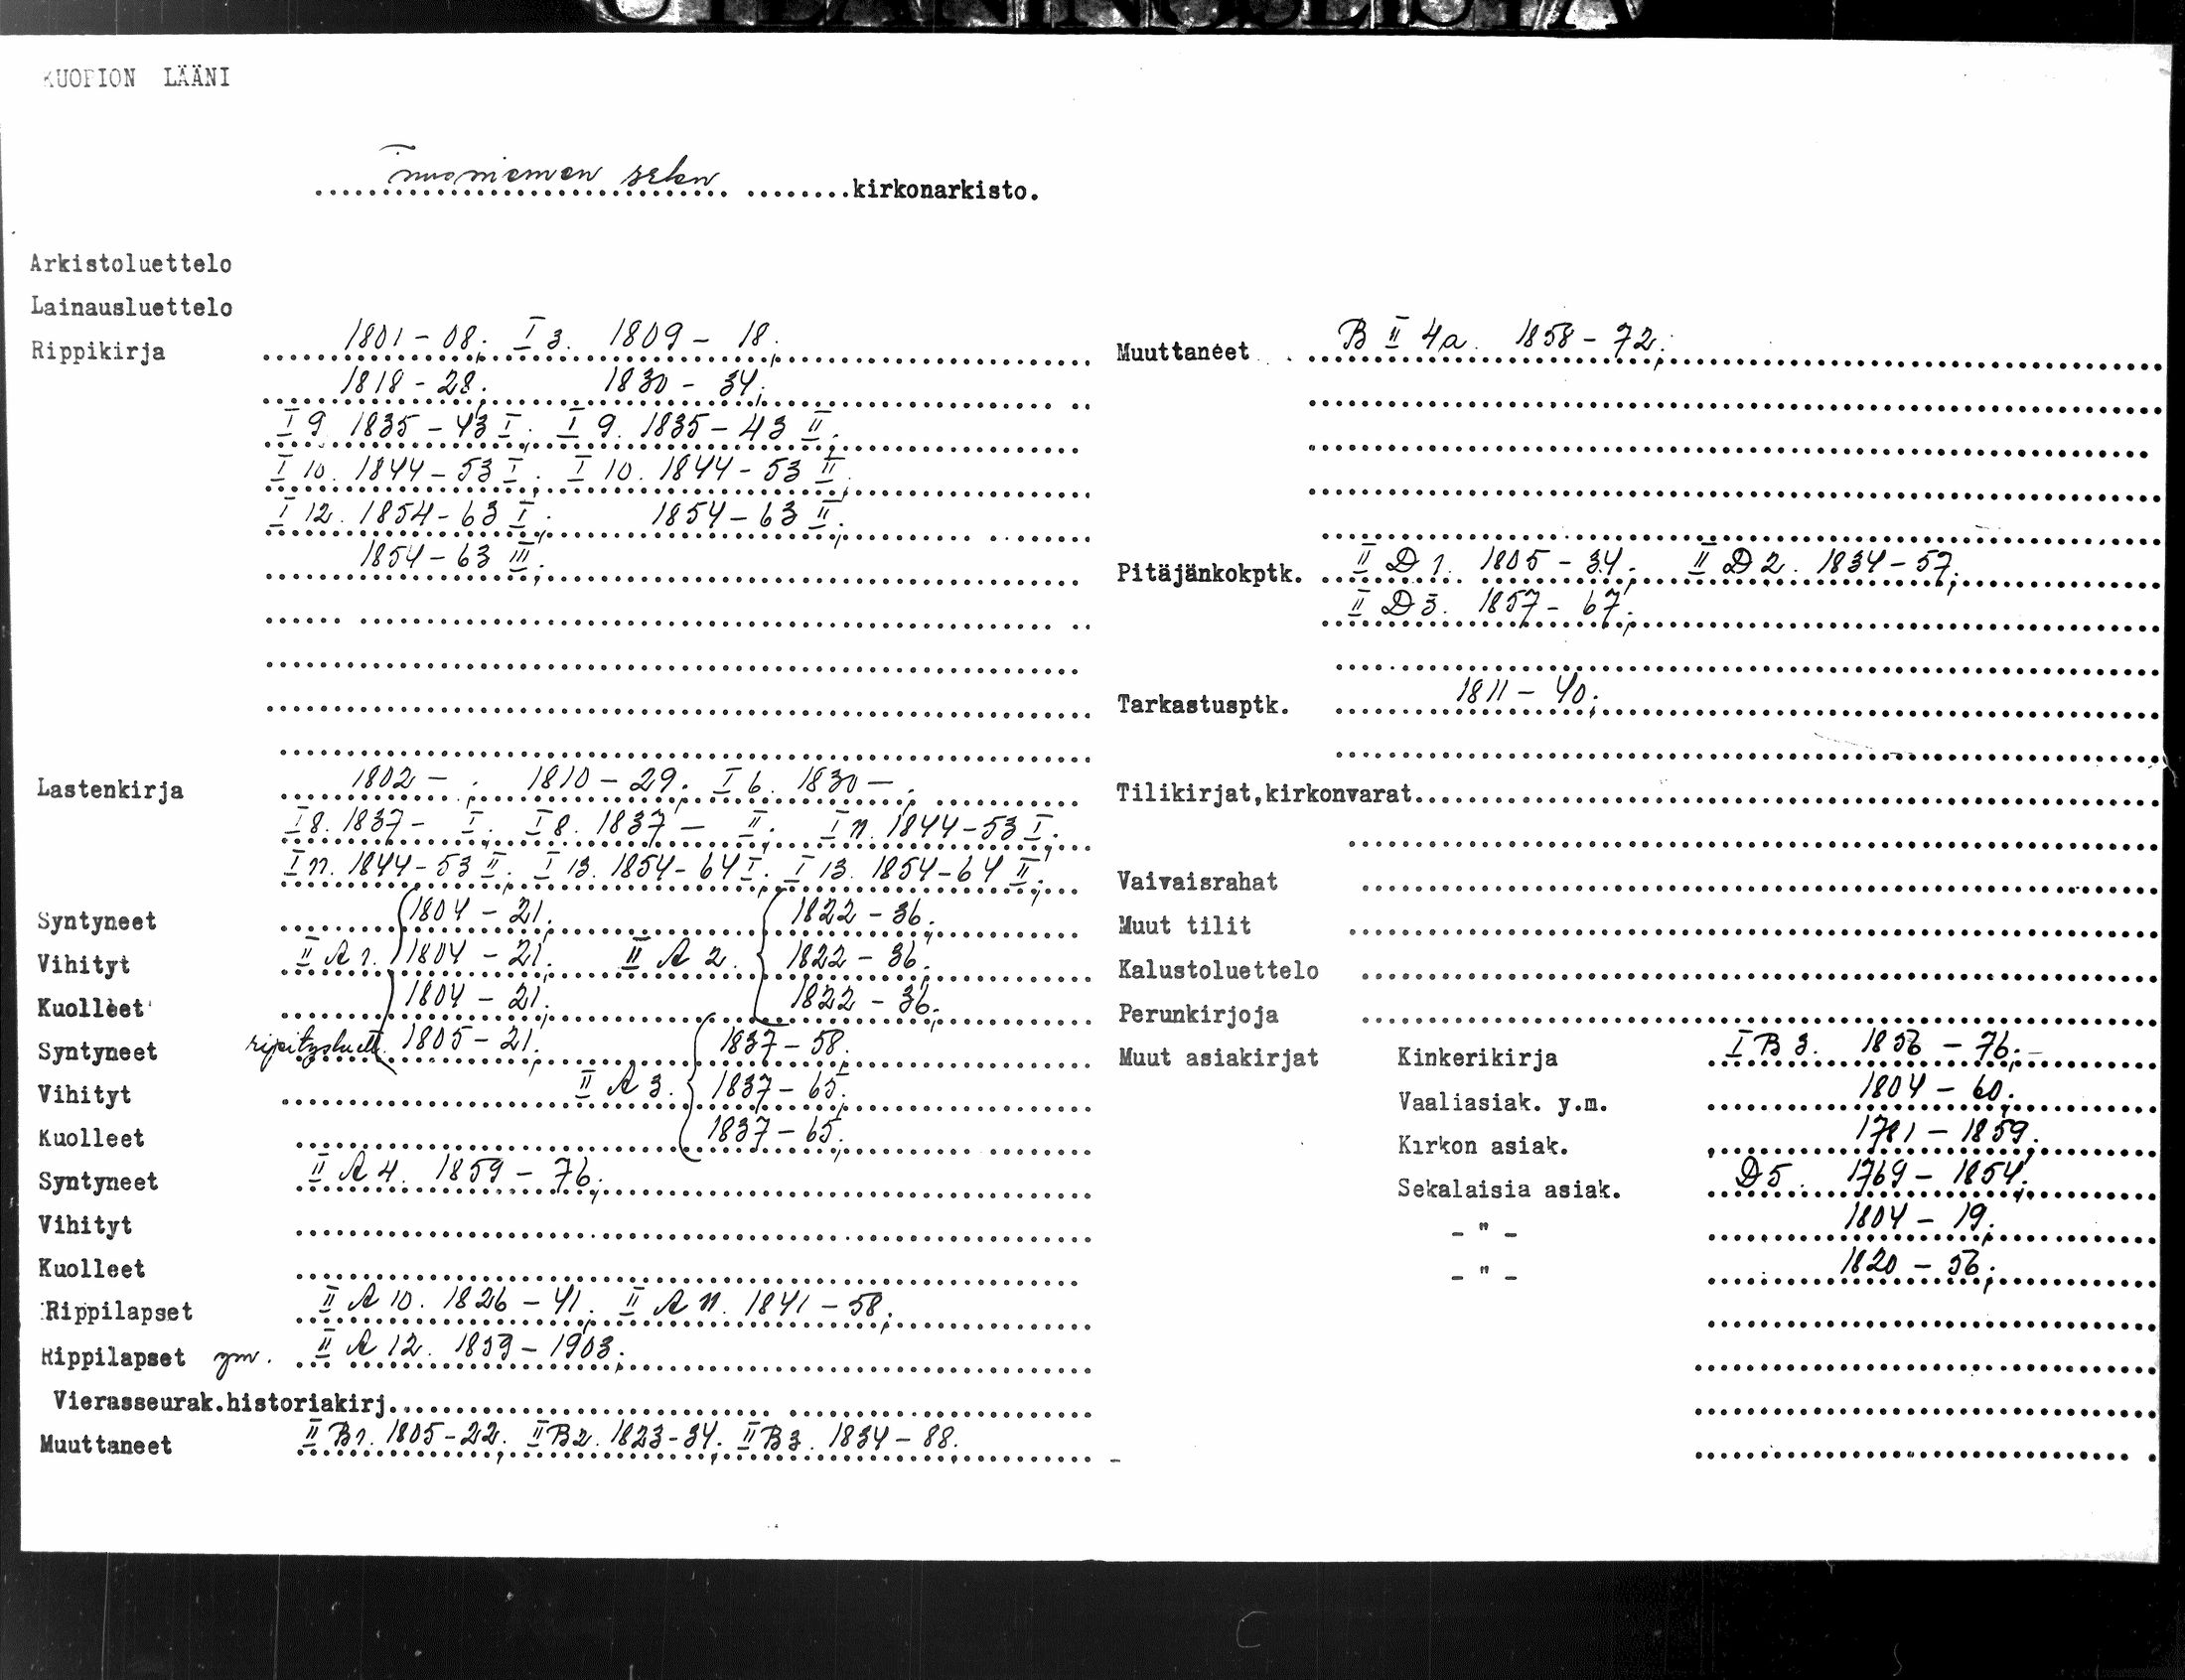 KUOPION LÄÄNI
Tuusniemen srkn kirkonarkisto.
Arkistoluettelo
Lainausluettelo
Rippikirja 1801-08; I 3. 1809-18;
1818-28; 1830-34;
I 9. 1835-43 I; I 9. 1835-43 II;
I 10. 1844-53 I; I 10. 1844-53 II;
I 12. 1854-63 I; 1854-63 II;
1854-63 III;
Lastenkirja 1802- ; 1810-29; I 6. 1830- ;
I 8. 1837- I; I 8. 1837- II; I 11. 1844-53 I;
I 11. 1844-53 II; I 13. 1854-64 I; I 13. 1854-64 II;
Syntyneet 1804-21; 1822-36;
Vihityt II A 1. 1804-21; II A 2. 1822-36;
Kuolleet 1804-21; 1822-36;
Syntyneet ripityslueth. 1805-21; 1837-58;
Vihityt II A 3. 1837-65;
Kuolleet 1837-65;
Syntyneet II A 4. 1859-76;
Vihityt
Kuolleet
Rippilapset II A 10. 1826-41; II A 11. 1841-58;
Rippilapset ym. II A 12. 1859-1903;
Vierasseurak.historiakirj.
Muuttaneet II B 1. 1805-22; II B 2. 1823-34; II B 3. 1834-88;
Muuttaneet B II 4a. 1858-72;
Pitäjänkokptk. II D 1. 1805-34; II D 2. 1834-57;
II D 3. 1857-67;
Tarkastusptk. 1811-40;
Tilikirjat,kirkonvarat
Vaivaisrahat
Muut tilit
Kalustoluettelo
Perunkirjoja
Muut asiakirjat Kinkerikirja I B 3. 1856-76;
Vaaliasiak. y.m. 1804-60;
Kirkon asiak. 1781-1859;
Sekalaisia asiak. D 5. 1769-1854;
- " - 1804-19;
- " - 1820-56;